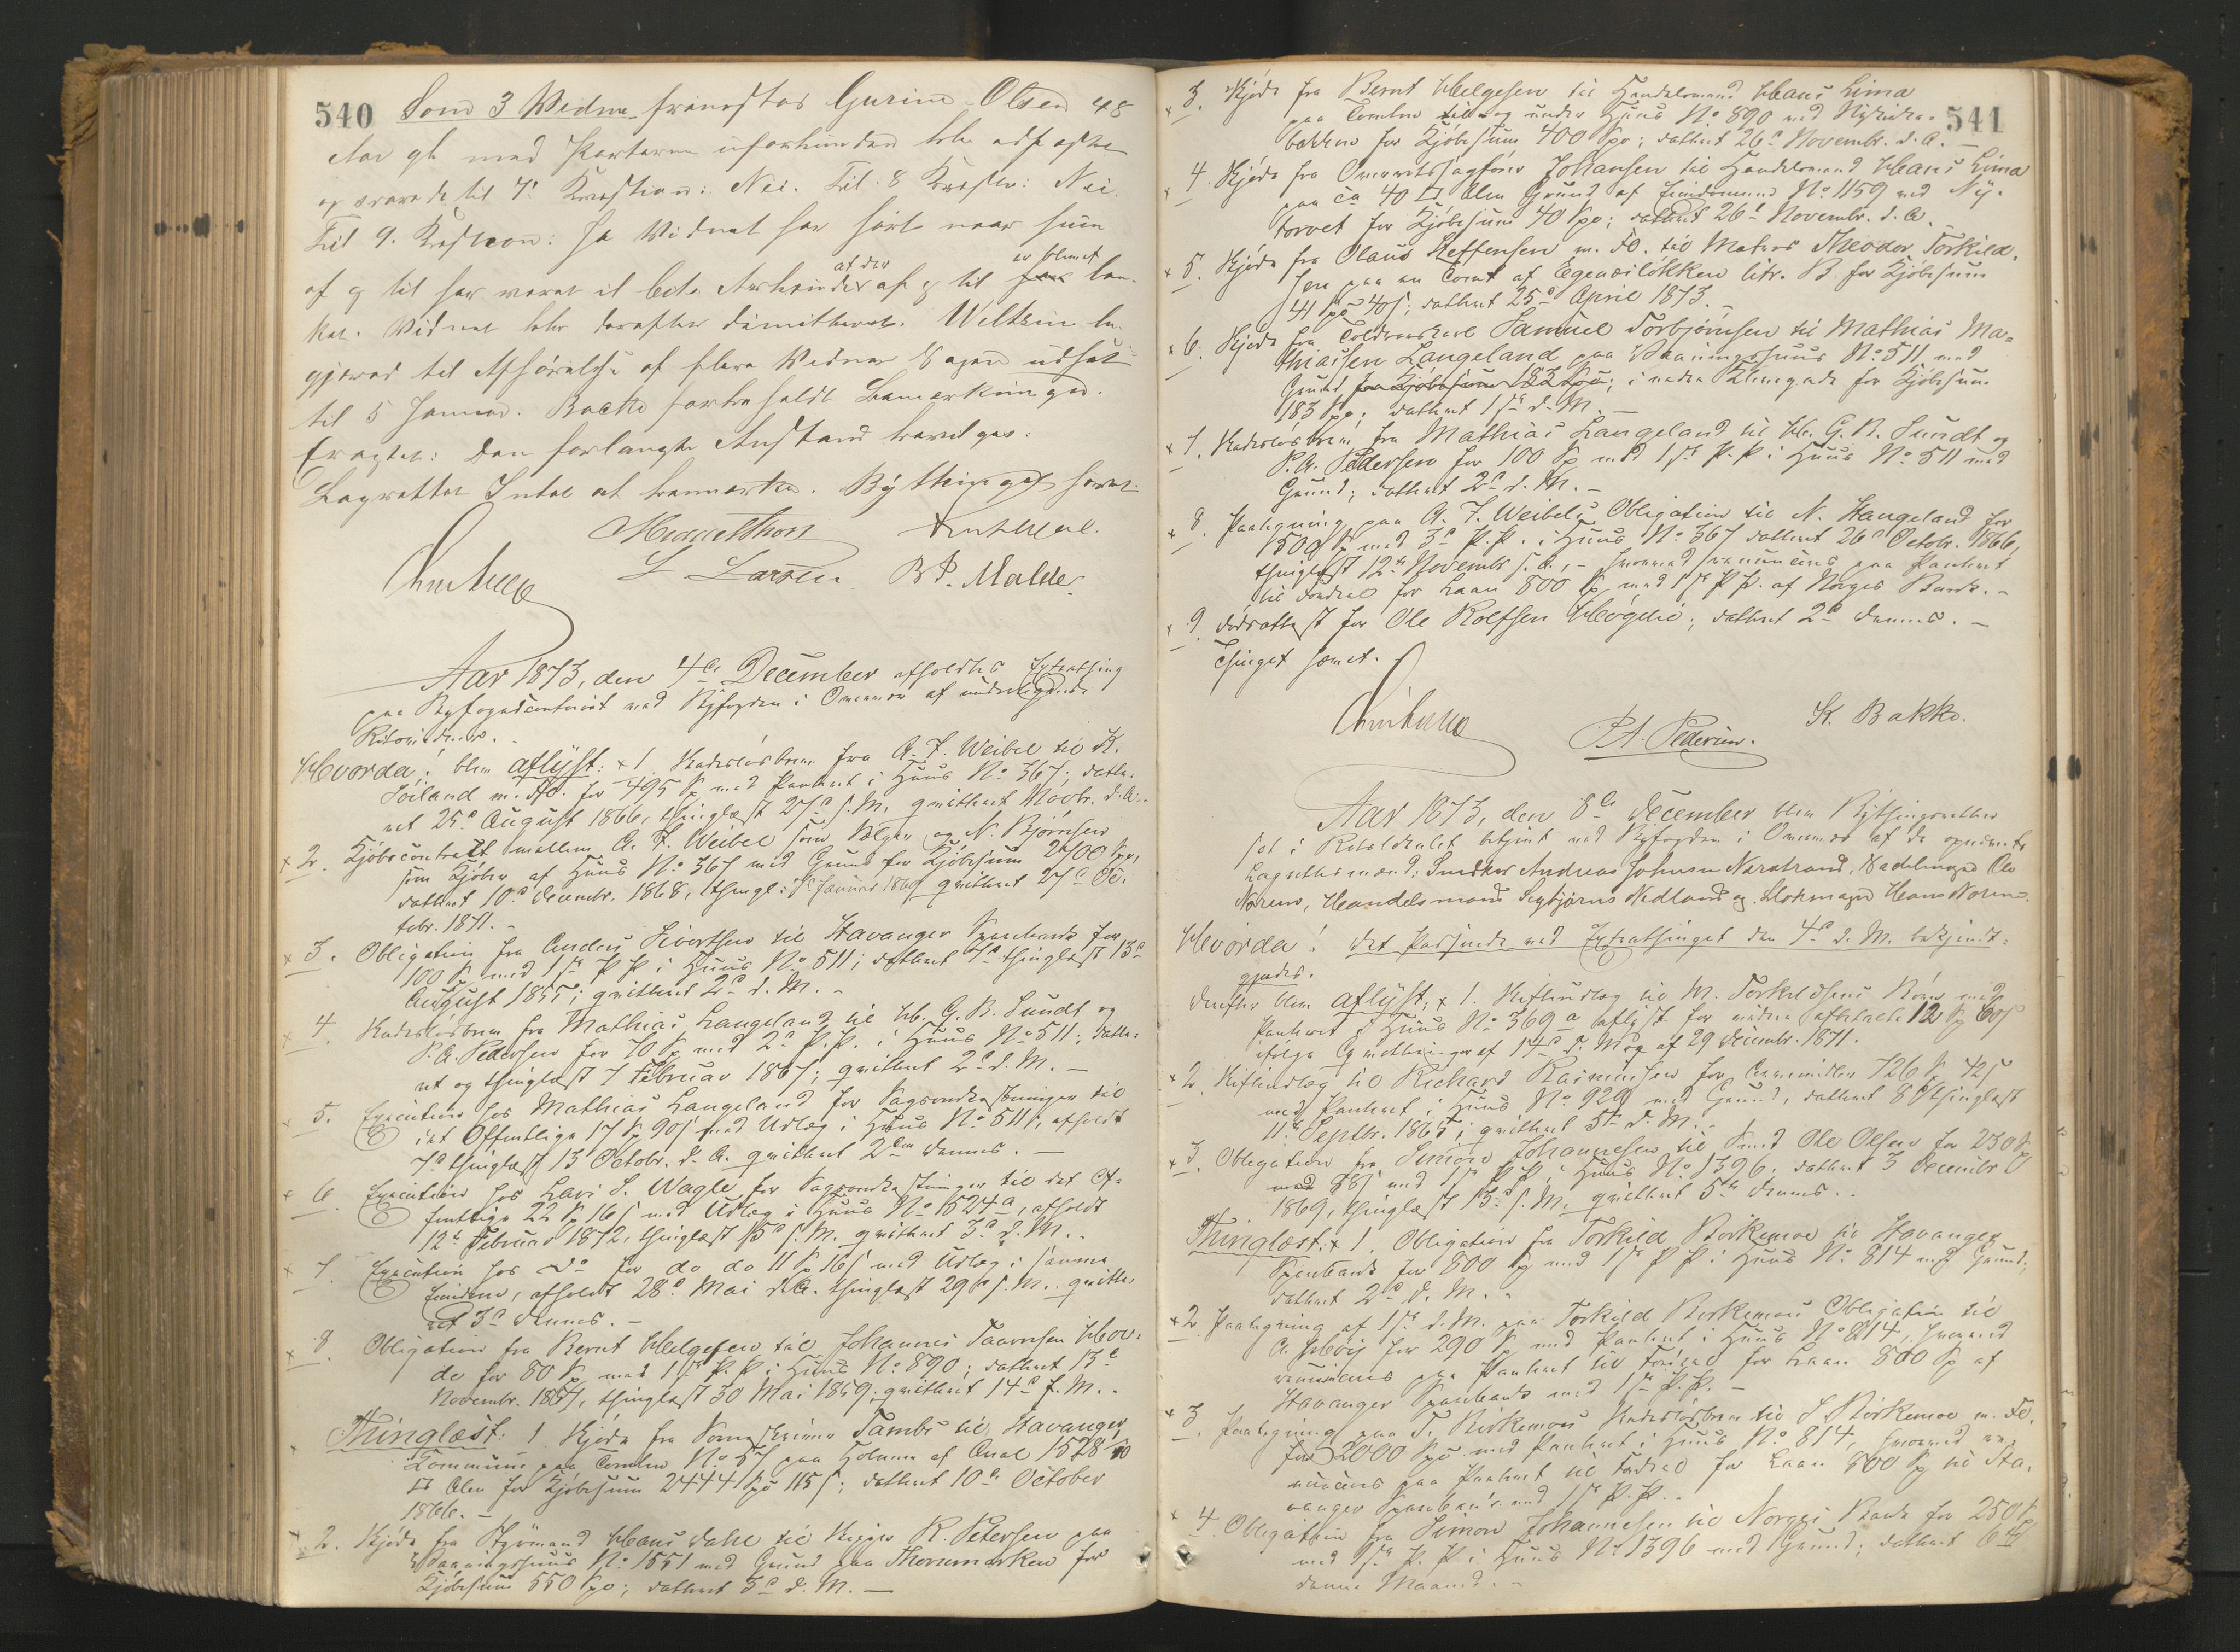 540 Som 3 Vidne fremstod Gurine Olsen 48
Aar gl. med Parterne uforbunden blev edfæstet
og svarede til 7' Kvæstion: Nei. Til 8 Kvæstion: Nei.
Til 9. Kvæstion: Ja Vidnet har hørt naar hun
af og til har været at der af og til er blevet ban-
ket. Vidnet blev derefter dimitteret. be-
gjerede til Afhørelse af flere Vidner Sagen udsat
til 5 Januar. Bakke forbeholdt Bemærkninger.
Eragtet: Den forlangte Anstand bevilges.
Lagrettet Intet at bemærke. Bythinget hævet.
L Larsen. B P. Malde.
Aar 1873, den 4de December afholdtes Extrathing
paa Byfogedcontoiret ved Byfogden i Overvær af undertegnede
Retsvidner.
Hvorda: blev aflyst: x 1. Skadesløsbrev fra A. F. Weibel til K.
Soiland m. Fl. for 495 Sp med Panteret i Huus No 367; date-
ret 25de August 1866, thinglæst 27de s. M. qvitteret Novbr. d. A. -
x 2. Kjøbecontract mellem A. F. Weibel som Sælger og N. Bjørnsen
som Kjøber af Huus No 367 med Grund for Kjøbesum 2700 Spd,
dateret 10de Decembr. 1868, thingl: 7de Januar 1869 qvitteret 27de Oc-
tobr. 1871. -
x 3. Obligation fra Anders Sivertsen til Stavanger Sparebank for
100 Sp med 1ste P. P. i Huus No 511; dateret 7de thinglæst 13de
August 1855; qvitteret 2de d. M. -
x 4. Skadesløsbrev fra Mathias Langeland til Hr. G. B. Sundt og
P. A. Pedersen for 70 Sp med 2de P. P. i Huus No 511; date-
ret og thinglæst 7 Februar 1867; qvitteret 2de d. M. -
x 5. Execution hos Mathias Langeland for Sagsomkostninger til
det Offentlige 17 Sp 90 s med Udlæg i Huus No 511, afholdt
7de thinglæst 13 Octobr. d. A. qvitteret 2den dennes. -
x 6. Execution hos Lars S. Wagle for Sagsomkostninger til det Of-
fentlige 22 Sp 16 s med Udlæg i Huus No 1524a, afholdt
12te Februar 1872, thinglæst 15de s. M. qvitteret 3de d. M. -
x 7. Execution hos Do for do do 11 Sp 16 s med Udlæg i samme
Eiendom, afholdt 28de Mai d. A. thinglæst 29de s. M. qvitte-
ret 3de dennes. -
x 8. Obligation fra Bernt Helgesen til Johannes Hov-
de for 80 Sp med 1ste P. P. i Huus No 890; dateret 13de
Novembr. 1857, thinglæst 30 Mai 1859; qvitteret 14de f. M. -
Thinglæst: 1. Skjøde fra Tambs til Stavanger
Kommune paa Tomten No 57 paa Holmen af Areal 1528
□ Alen for Kjøbesum 2444 Spd 115 s; dateret 10de October
1866. -
x 2. Skjøde fra Styrmand Hans Dahl til Skipper R. Petersen paa
Vaaningshuus No 1551 med Grund paa for
Kjøbesum 550 Spd; dateret 3de d. M. -
541
x 3. Skjøde fra Bernt Helgesen til Handelsmand Hans Lima
paa Tomten til og under Huus No 890 ved
bakken for Kjøbesum 400 Spd; dateret 26de Novembr. d. A. -
x 4. Skjøde fra Overretssagfører Johansen til Handelsmand Hans Lima
paa ca 40 □ Alen Grund af Eiendommen No 1159 ved Ny-
torvet for Kjøbesum 40 Spd; dateret 26de Novembr. d. A.
x 5. Skjøde fra Olaus Steffensen m. Fl. til Matros Theodor Torkild-
sen paa en Tomt af Egenæsløkken litr. B for Kjøbesum
41 Spd 40 s; dateret 25de April 1873. -
x 6. Skjøde fra Toldroerskarl Samuel Torbjørnsen til Mathias Ma-
thiassen Langeland paa Vaaningshuus No 511 med
Grund for Kjøbesum 183 Spd; i nedre Klevegade for Kjøbesum
183 Spd; dateret 1ste d. M. -
x 7. Skadesløsbrev fra Mathias Langeland til Hr. G. B. Sundt og
P. A. Pedersen for 100 Sp med 1ste P. P. i Huus No 511 med
Grund; dateret 2de d. M. -
x 8. Paategning paa A. F. Weibels Obligation til N. Stangeland for
1500 Sp med 3de P. P. i Huus No 367 dateret 26de Octobr. 1866,
thinglæst 12te Novembr s. A., - hvorved renunceres paa Panteret
til Fordeel for Laan 800 Sp med 1ste P. P. af Norges Bank. -
x 9. Dødsattest for Ole Rolfsen Høgelie; dateret 2de dennes. -
Thinget hævet.
P. A. Pedersen. K. Bakke.
Aar 1873, den 8de December blev Bythingsretten
sat i Retslokalet betjent ved Byfogden i Overvær af de opnævnte
Lagrettesmænd: Snedker Andreas Johnsen Narstrand, Ole
Noren, Handelsmand Sigbjørn Nedland og Hans Noren.
Hvorda: Det Passerede ved Extrathinget den 4de d. M. bekjendt-
gjordes.
Derefter blev aflyst: x 1. Skifteudlæg til M. Torkeldsens Børn med
Panteret i Huus No 369a aflyst for videre afbetalte 12 Sp 60 s
ifølge Qvitteringer af 14de d. M og af 29 Decembr. 1871.
x 2. Skifteudlæg til Richard Rasmusen for Arvemidler 726 Sp 42 s
med Panteret i Huus No 920 med Grund, dateret 8de thinglæst
11te Septbr. 1865; qvitteret 5te d. M. -
x 3. Obligation fra Simon Johannesen til Ole Olsen for 230 Sp
med 88 s med 1ste P. P. i Huus No 1396. dateret 3 Decembr
1869, thinglæst 13de s. M. qvitteret 5te dennes. -
Thinglæst: x 1. Obligation fra Torkild Birkemoe til Stavanger
Sparebank for 800 Sp med 1ste P. P. i Huus No 814 med Grund;
dateret 2de d. M. -
x 2. Paategning af 1ste d. M. paa Torkild Birkemoes Obligation til
A. for 290 Sp med Panteret i Huus No 814, hvorved
renunceres paa Panteret til Fordeel for Laan 800 Sp af
Stavanger Sparebank med 1ste P. P. -
x 3. Paategning paa T. Birkemoes Skadesløsbrev til S Birkemoe m. Fl.
for 2000 Spd med Panteret i Huus No 814, hvorved re-
nunceres paa Panteret til Fordeel for Laan 800 Sp til Sta-
vanger Sparebank med 1ste P. P. -
x 4. Obligation fra Simon Johannesen til Norges Bank for 250 Sp
med 1ste P. P. i Huus No 1396 med Grund; dateret 6te
denne Maaned. -